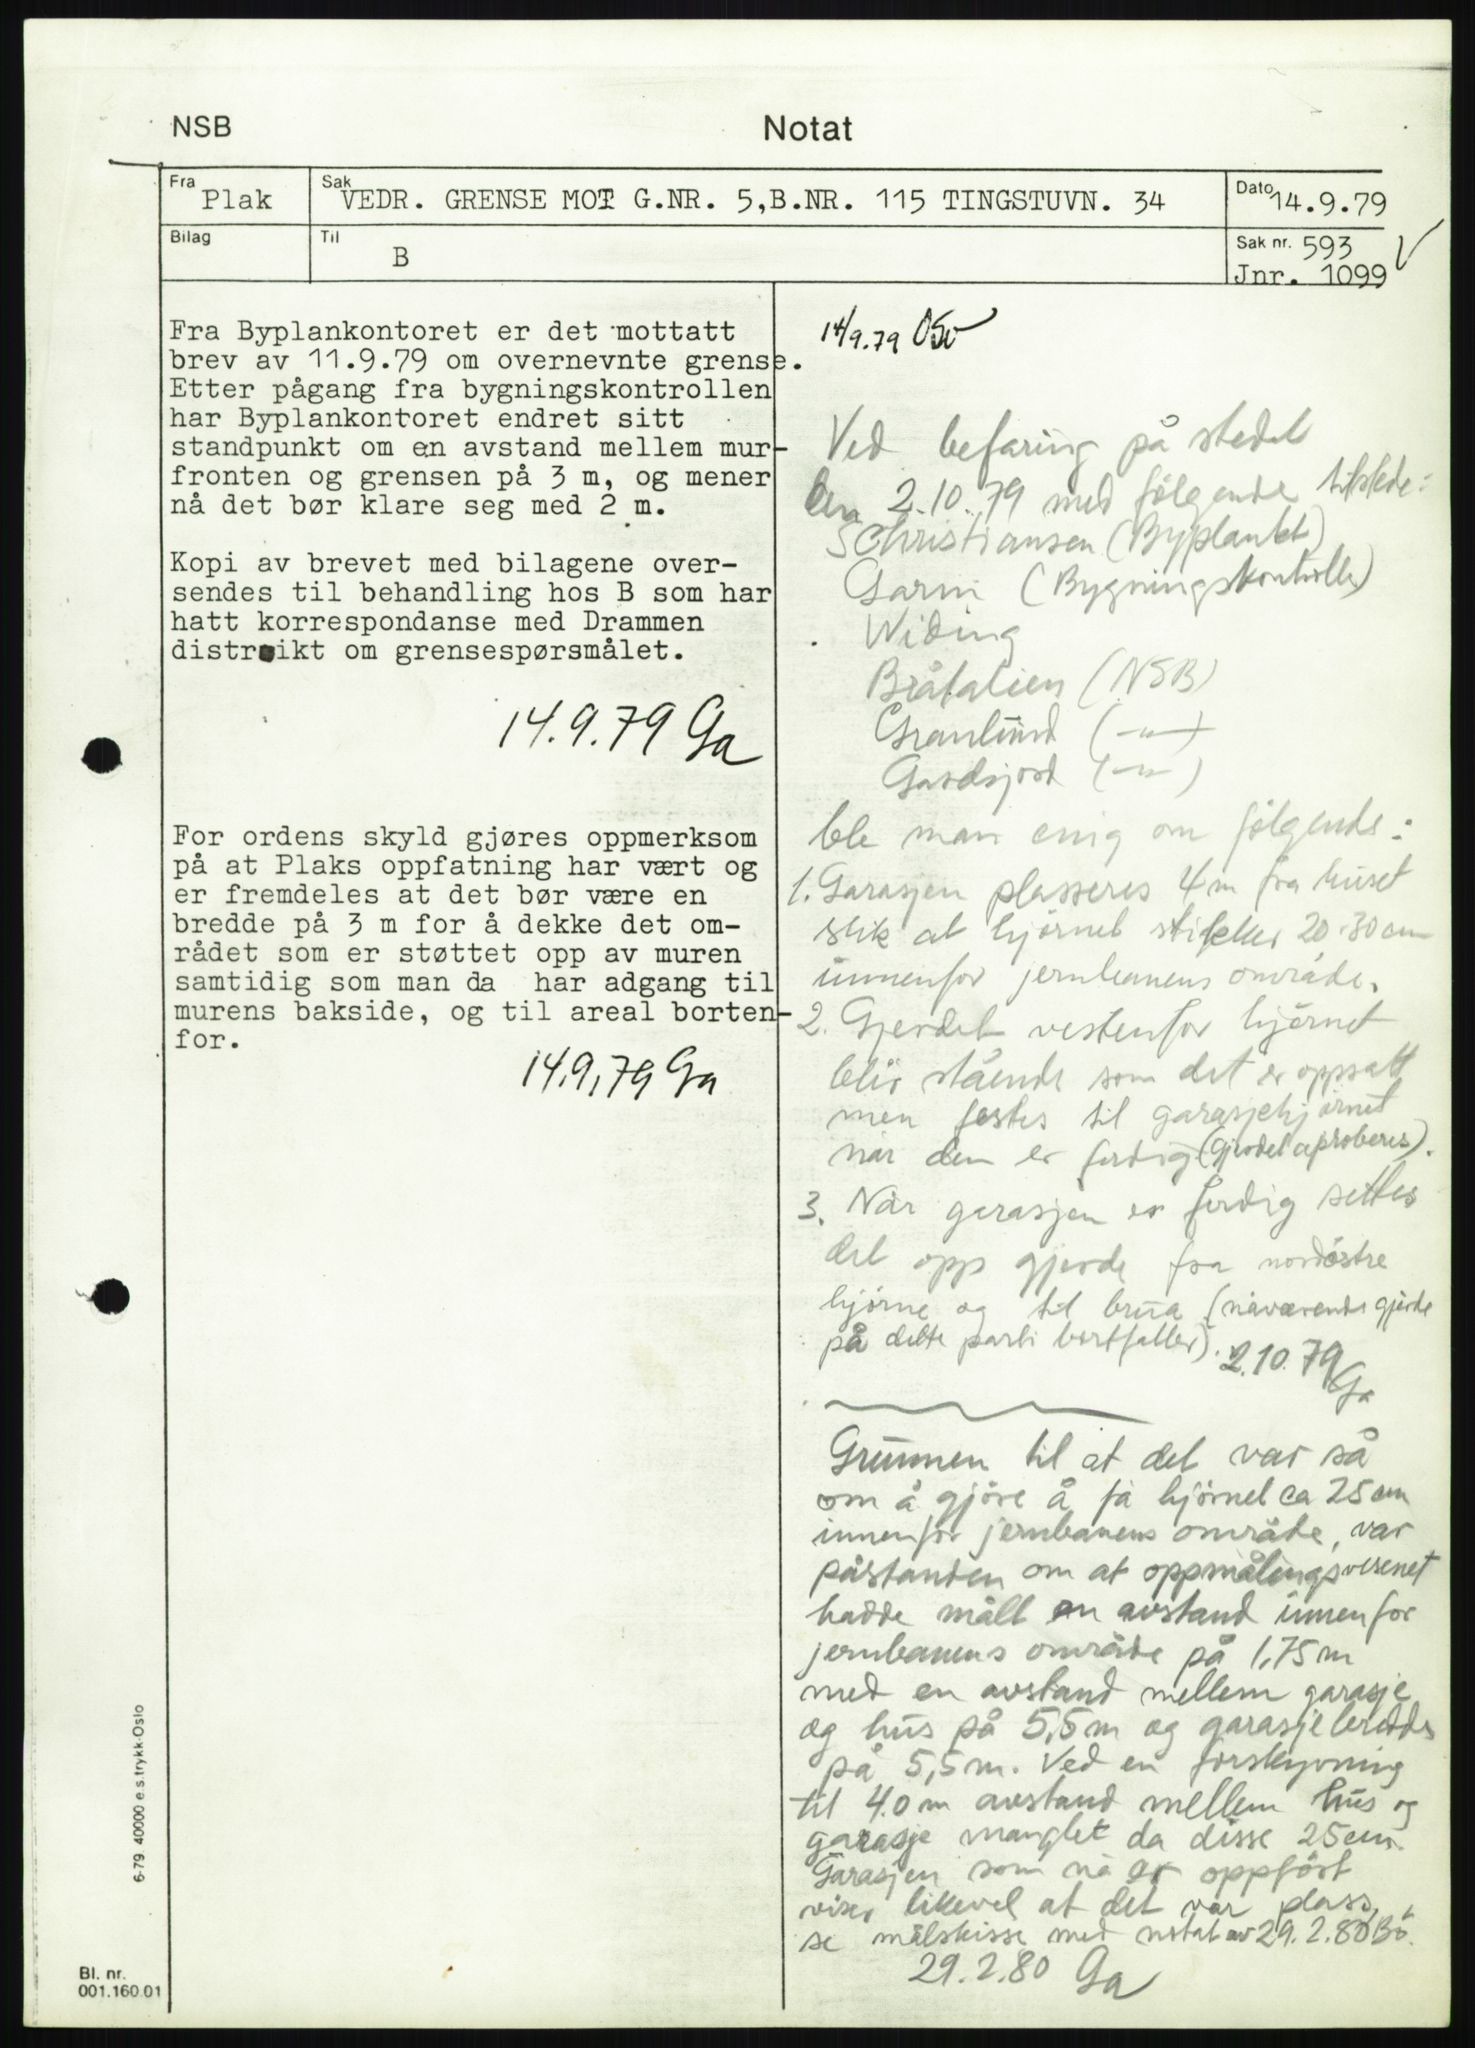 NSB
Notat
Fra Plak
Sak VEDR. GRENSE MOT G.NR. 5,B.NR. 115 TINGSTUVN. 34
Dato 14.9.79
Bilag
Til B
Sak nr. 593
Jnr. 1099
Fra Byplankontoret er det mottatt
brev av 11.9.79 om overnevnte grense.
Etter pågang fra bygningskontrollen
har Byplankontoret endret sitt
standpunkt om en avstand mellem mur-
fronten og grensen på 3 m, og mener
nå det bør klare seg med 2 m.
Kopi av brevet med bilagene over-
sendes til behandling hos B som har
hatt korrespondanse med Drammen
distrikt om grensespørsmålet.
14.9.79 Ga
For ordens skyld gjøres oppmerksom
på at Plaks oppfatning har vært og
er fremdeles at det bør være en
bredde på 3 m for å dekke det om-
rådet som er støttet opp av muren
samtidig som man da har adgang til
murens bakside, og til areal borten-
for.
14.9.79 Ga
14/9.79
Ved befaring på stedet
den 2.10.79 med følgende tilstede:
Christiansen (Byplankt)
Garni (Bygningskontrolle)
Widing
Bråtalien (NSB)
Granlund (-"-)
Gardsjord (-"-)
ble man enig om følgende:
1. Garasjen plasseres 4 m fra huset
slik at hjørnet stikker 20-30 cm
innenfor jernbanens område.
2. Gjerdet vestenfor hjørnet
blir stående som det er oppsatt
men festes til garasjehjørnet
når den er ferdig (Gjerdet aproberes).
3. Når garasjen er ferdig settes
det opp gjerde fra nordøstre
hjørne og til brua (nåværende gjerde
på dette parti bortfaller).
2.10.79 Ga
Grunnen til at det var så
om å gjøre å få hjørnet ca 25 cm
innenfor jernbanens område, var
påstanden om at oppmålingsvesenet
hadde målt en avstand innenfor
jernbanens område på 1,75 m
med en avstand mellem garasje
og hus på 5,5 m og garasjebredde
på 5,5 m. Ved en forskyvning
til 4.0 m avstand mellem hus og
garasje manglet da disse 25 cm.
Garasjen som nå er oppført
viser likevel at det var plass,
se målskisse med notat av 29.2.80 Bö.
29.2.80 Ga
6-79 40000 e.s.trykk-Oslo
Bl. nr.
001.160.01